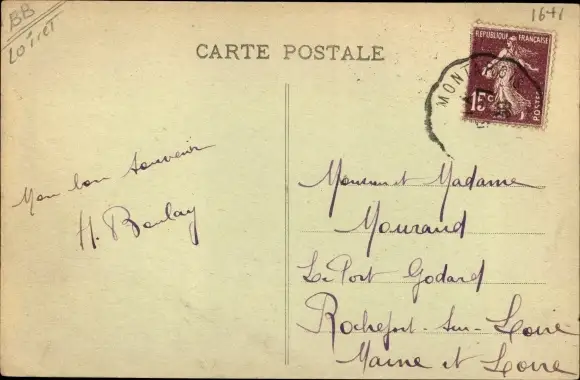 BB
Loiret
16+1
CARTE POSTALE
REPUBLIQUE FRANÇAISE
15c
POSTES
MONT
Mon bon souvenir
H. Boulay
Monsieur et Madame
Mourand
Le Port Godard
Rochefort-sur-Loire
Maine et Loire